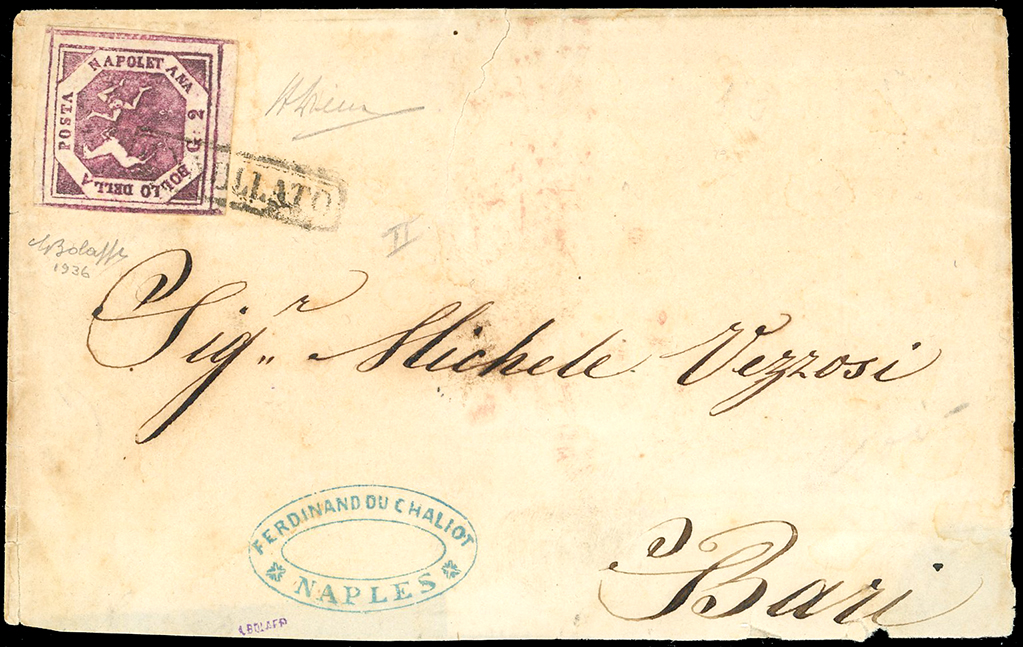 POSTA NAPOLETANA
BOLLO DELLA
G. 2
LLATO
ABolaffi
1936
II
Sig.r Michele Vezzosi
FERDINAND DU CHALIOT
NAPLES
A. BOLAFFI
Bari